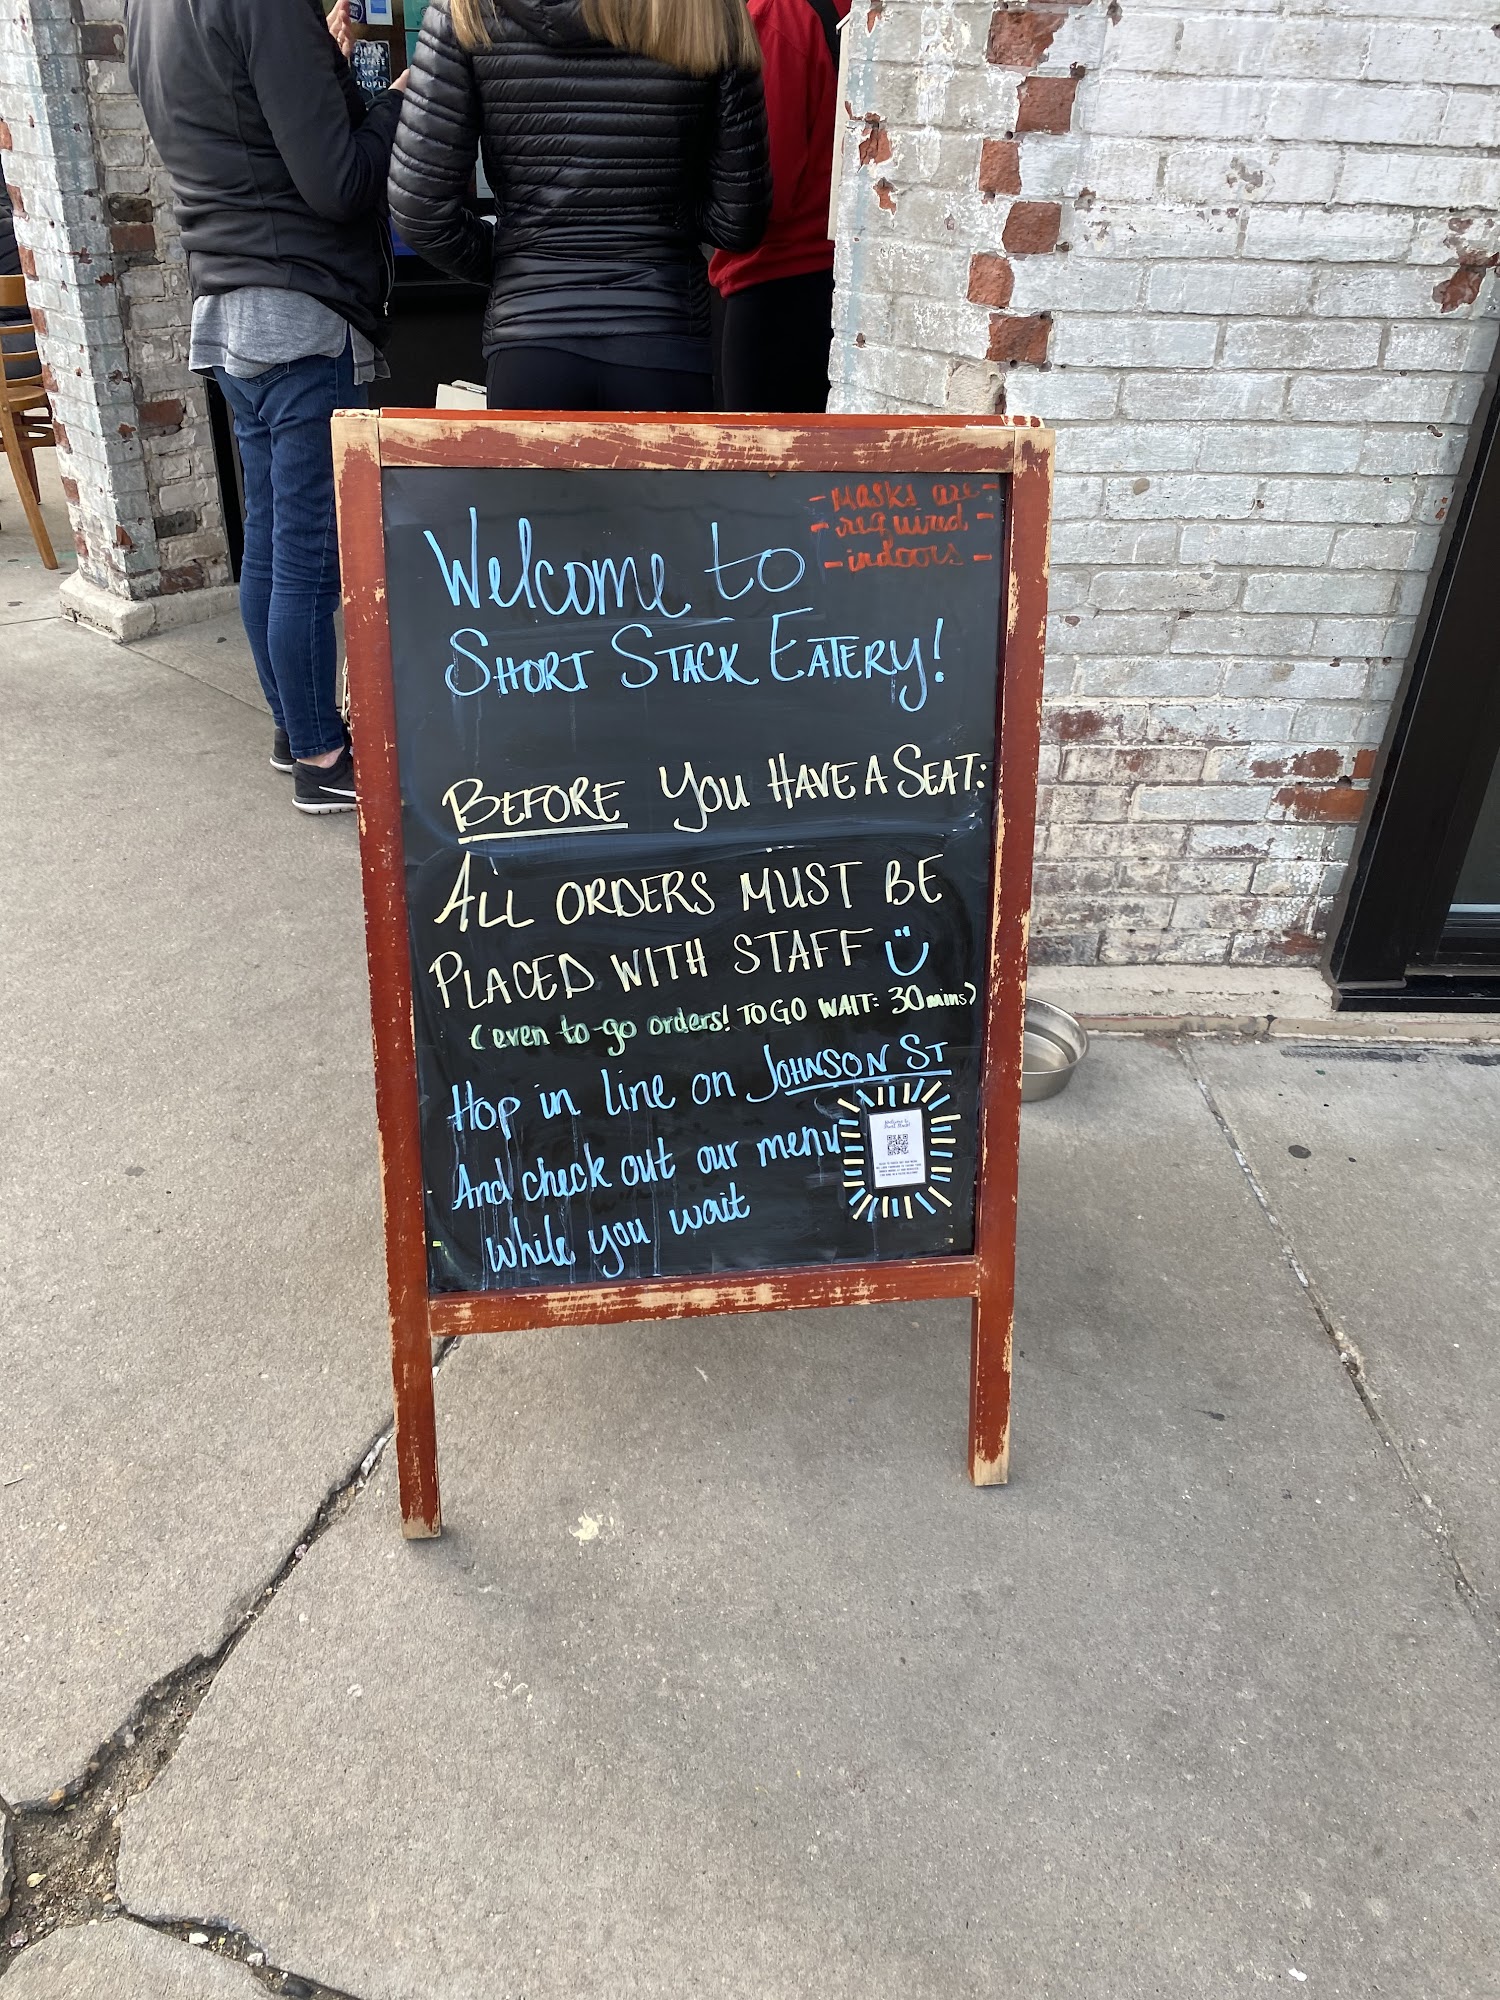 FILTER
COFFEE
NOT
PEOPLE
- Masks are -
- required -
- indoors -
Welcome to
Short Stack Eatery!
BEFORE You HAVE A SEAT:
ALL ORDERS MUST BE
PLACED WITH STAFF
(even to-go orders! TO GO WAIT: 30 mins)
Hop in line on JOHNSON ST
And check out our menu
while you wait
Welcome to
Short Stack!